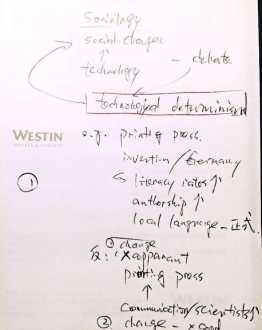 Sociology
social changes
↑
technology - debate
technological determinism
e.g. printing press.
WESTIN
HOTELS & RESORTS
invention / Germany
① ↳ literacy rates ↑
authorship ↑
local language - 正式.
① change
反: ✗ apparant
printing press
↑
communication / scientists ↑
② change - ✗ good